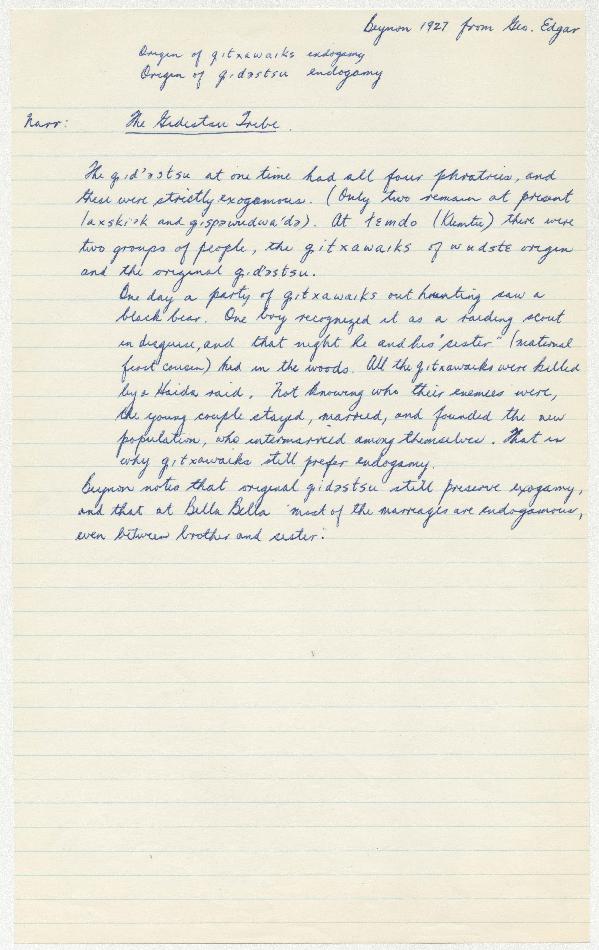 Beynon 1927 from Geo. Edgar
Origin of gitxawaiks endogamy
Origin of gidəstsu endogamy
Narr: The Gidestsu Tribe.
The gid'əstsu at one time had all four phratries, and
these were strictly exogamous. (Only two remain at present
laxski·k and gispəwudwa'də). At łemdo (Klemtu) there were
two groups of people, the gitxawaiks of wudstɛ origin
and the original gidəstsu.
One day a party of gitxawaiks out hunting saw a
black bear. One boy recognized it as a raiding scout
in disguise, and that night he and his "sister" (maternal
first cousin) hid in the woods. All the gitxawaiks were killed
by a Haida raid. Not knowing who their enemies were,
the young couple stayed, married, and founded the new
population, who intermarried among themselves. That is
why gitxawaiks still prefer endogamy.
Beynon notes that original gidəstsu still preserve exogamy,
and that at Bella Bella "most of the marriages are endogamous,
even between brother and sister."